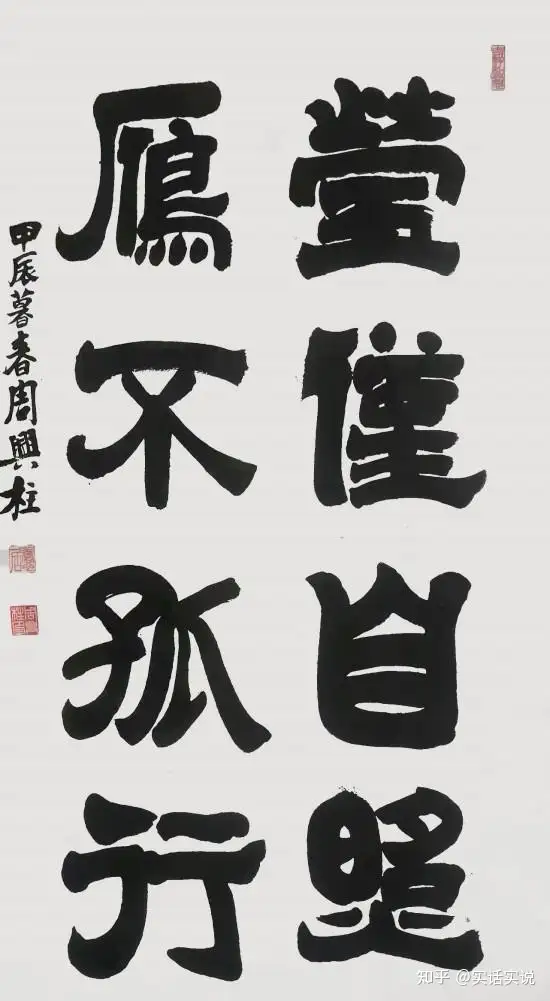 螢僅自照
鴈不孤行
甲辰暮春周興柱
知乎 @实话实说